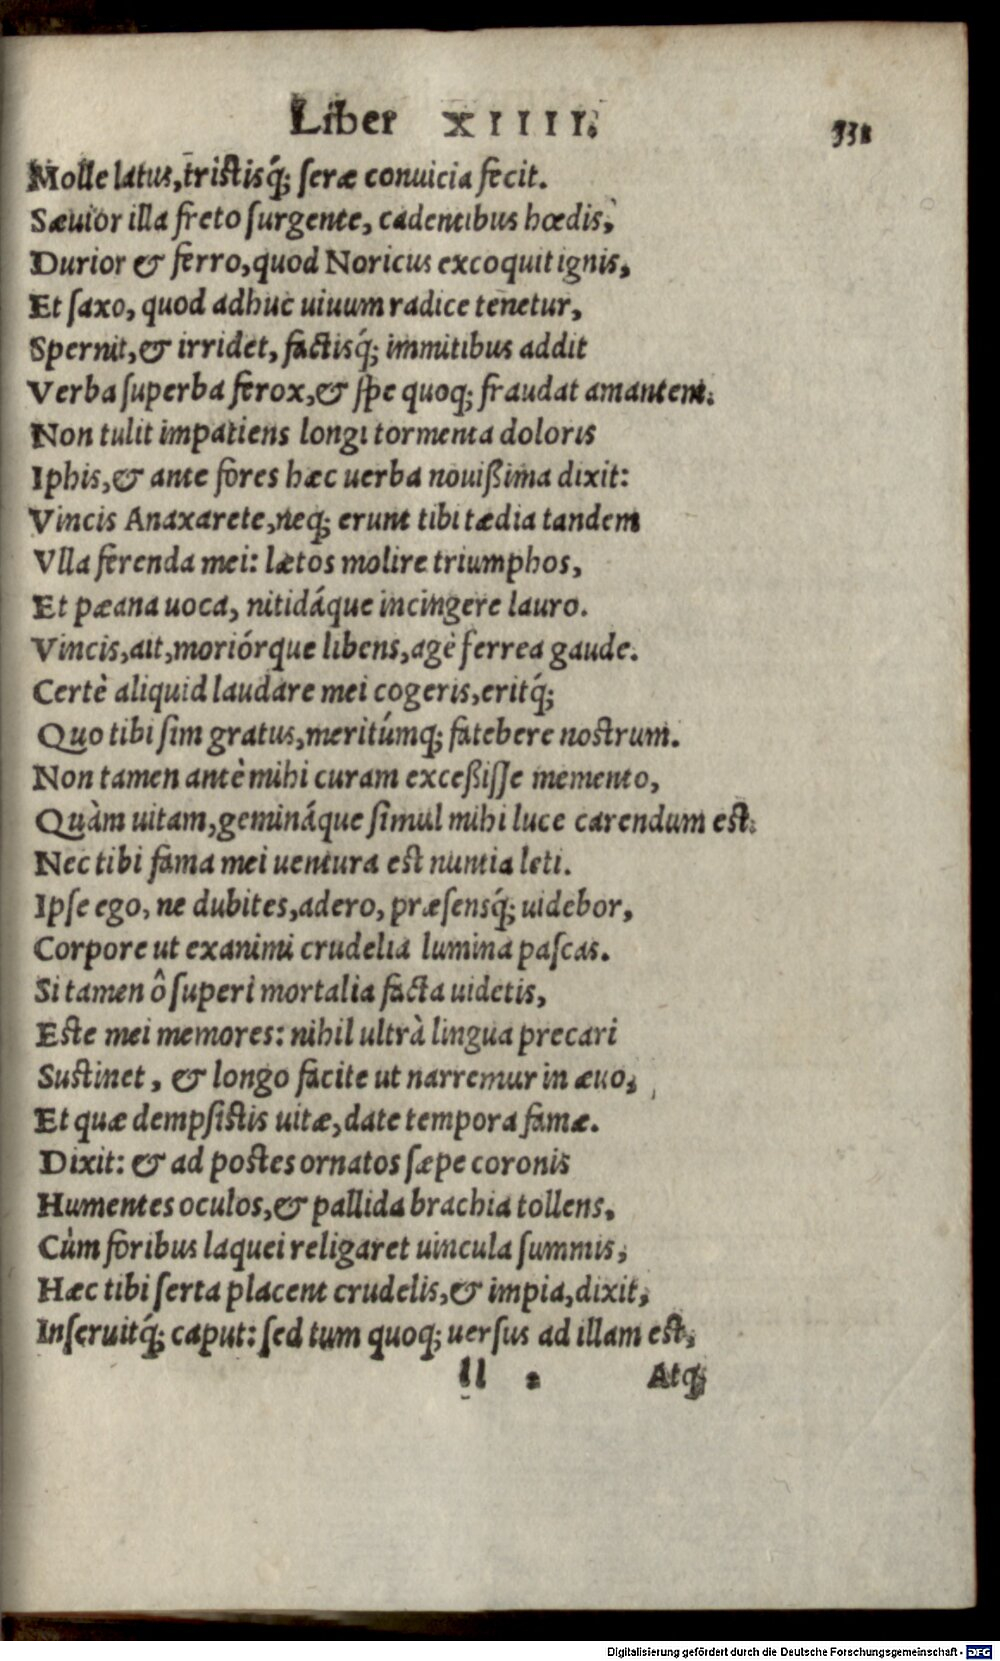 Liber XIIII. 331
Molle latus, tristisq́; seræ conuicia fecit.
Sæuior illa freto surgente, cadentibus hœdis,
Durior & ferro, quod Noricus excoquit ignis,
Et saxo, quod adhuc uiuum radice tenetur,
Spernit, & irridet, factisq́; immitibus addit
Verba superba ferox, & spe quoq; fraudat amantem.
Non tulit impatiens longi tormenta doloris
Iphis, & ante fores hæc uerba nouißima dixit:
Vincis Anaxarete, neq; erunt tibi tædia tandem
Vlla ferenda mei: lætos molire triumphos,
Et pæana uoca, nitidáque incingere lauro.
Vincis, ait, moriórque libens, age ferrea gaude.
Certè aliquid laudare mei cogeris, eritq́;
Quo tibi sim gratus, meritúmq; fatebere nostrum.
Non tamen antè mihi curam exceßisse memento,
Quàm uitam, geminâque simul mihi luce carendum est.
Nec tibi fama mei uentura est nuntia leti.
Ipse ego, ne dubites, adero, præsensq́; uidebor,
Corpore ut exanimi crudelia lumina pascas.
Si tamen ô superi mortalia facta uidetis,
Este mei memores: nihil ultrà lingua precari
Sustinet, & longo facite ut narremur in æuo,
Et quæ dempsistis uitæ, date tempora famæ.
Dixit: & ad postes ornatos sæpe coronis
Humentes oculos, & pallida brachia tollens,
Cùm foribus laquei religaret uincula summis,
Hæc tibi serta placent crudelis, & impia, dixit,
Inseruitq́; caput: sed tum quoq; uersus ad illam est,
ll 2 Atq;
Digitalisierung gefördert durch die Deutsche Forschungsgemeinschaft - DFG